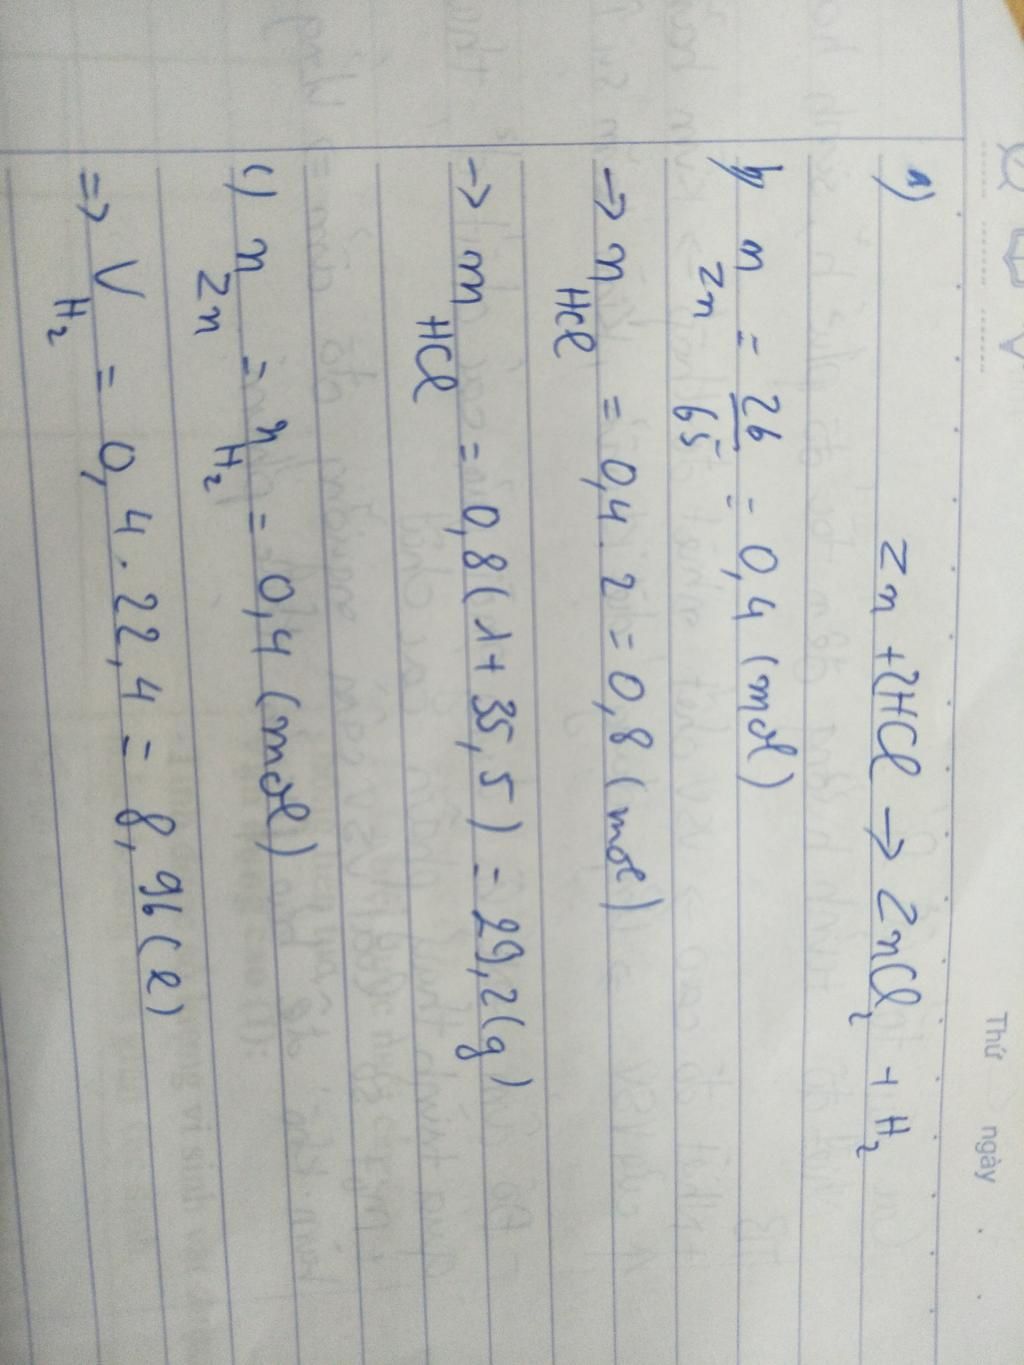 Thứ ngày
a) Zn + 2HCl → ZnCl₂ + H₂
b) n Zn = 26/65 = 0,4 (mol)
→ n HCl = 0,4 . 2 = 0,8 (mol)
→ m HCl = 0,8 (1 + 35,5) = 29,2 (g)
c) n Zn = n H₂ = 0,4 (mol)
=> V H₂ = 0,4 . 22,4 = 8,96 (l)